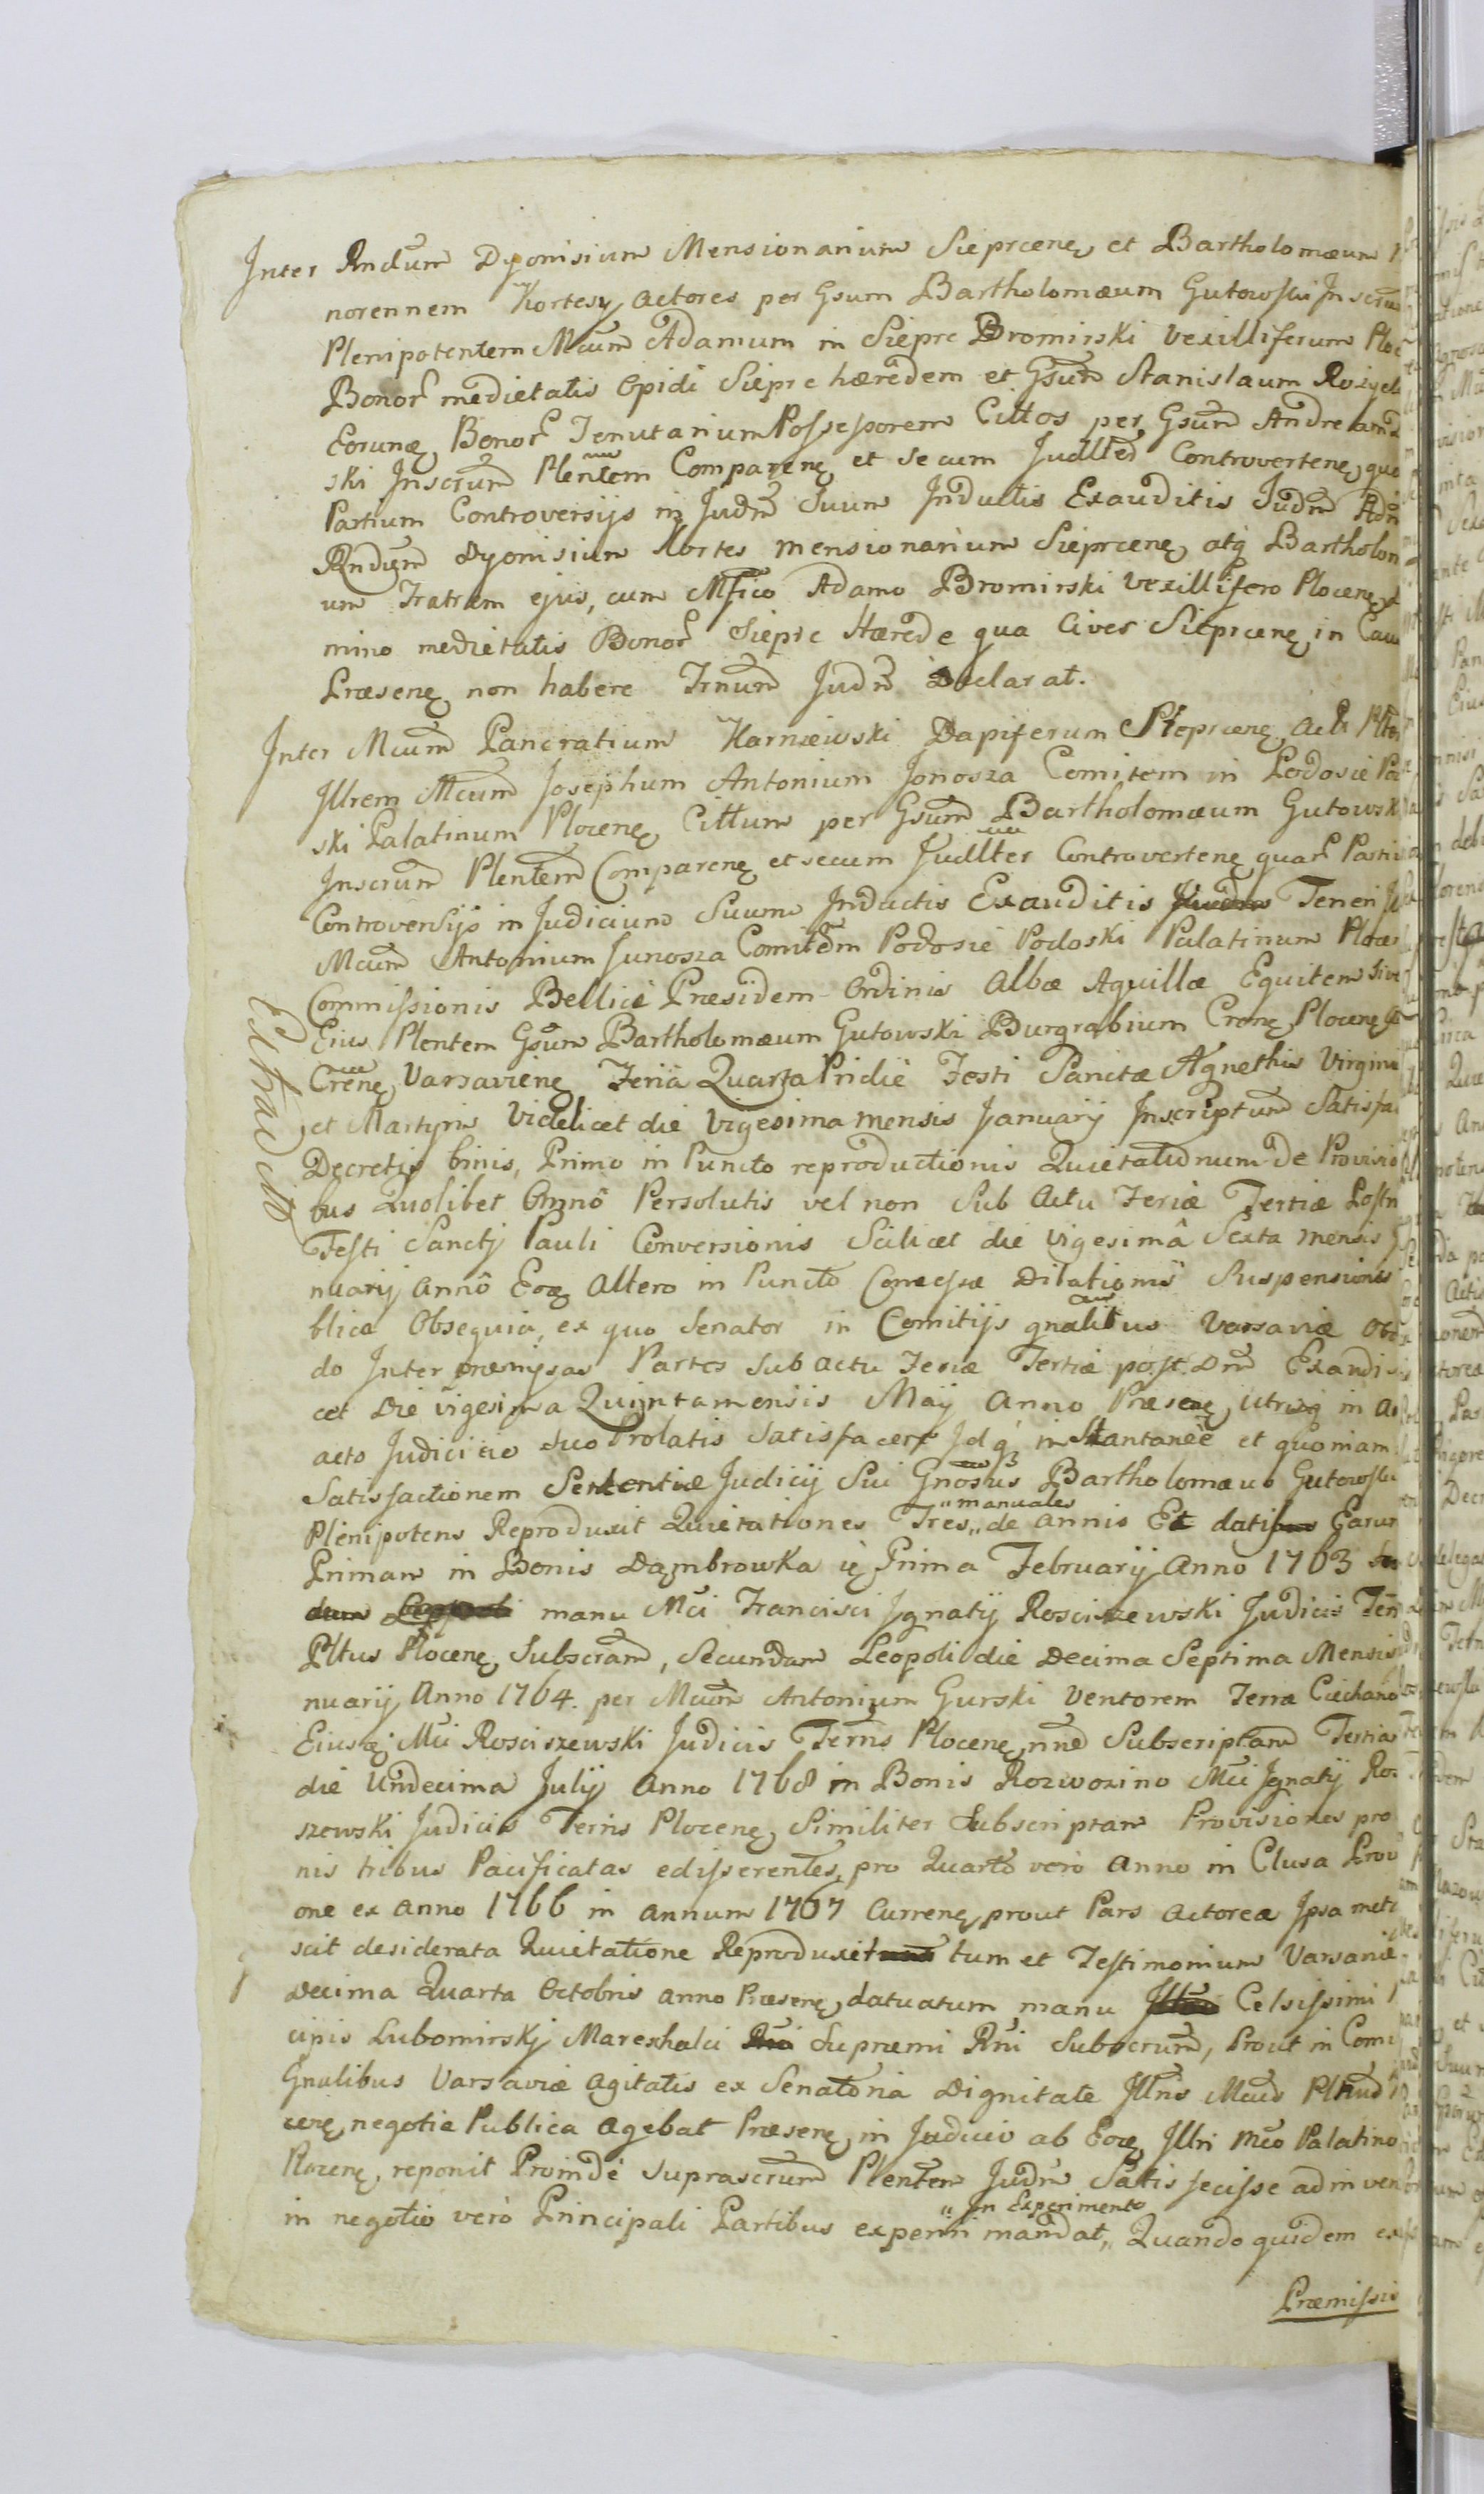 Inter Rndum Dyonisium Mensionarium Sieprcenę et Bartholomæum
norennem Kortesy Actores per Gsum Bartholomæum Gutowski Inscrum
Plenipotentem Mcum Adamum in Sieprc Bromirski Vexilliferum Ploc
Bonor medietatis Opidi Sieprc hæredem et Gsum Stanislaum Rozyck
Eorunq Bonor Tenutarium Possessorem Cittos per Gsum Andream
ski Inscrum Plentem Comparenę et secum Judlted Controvertenę quo
Partium Controversijs in Judm Suum Inductis Exauditis Judm Adm
Rndum Dyonisium Kortes mensionarium Sieprcenę atq Bartholom
um Fratrem ejus, cum Mfico Adamo Bromirski Vexillifero Plocenę
mino medietatis Bonor Sieprc Hærede qua Cives Sieprcenę in Cau
Præsenę non habere Trnum Judm Declarat.
Inter Mcum Pancratium Karniewski Dapiferum Sieprcenę
Illrem Mcum Josephum Antonium Jonosza Comitem in Podosie Po
ski Palatinum Plocenę Cittum per Gsum Bartholomæum Gutowsk
Inscrum Plentem Comparenę et secum Judllter Controvertenę quar Parti
Controversijs in Judicium Suum Inductis Exauditis Teneri
Mcum Antonium Junosza Comitem Podosie Podoski Palatinum Ploce
Commissionis Bellicé Præsidem Ordinis Albæ Aquillæ Equitem sive
Eius Plentem Gsum Bartholomæum Gutowski Burgrabium Crenę Plocenę
Crenę Varsavienę Feria Quarta Pridie Festi Sanctæ Agnethis Virgini
et Martyris Videlicet die Vigesima mensis Januarij Inscriptum Satisfa
Extradito
Decretis binis, Primo in Puncto reproductionis Quietationum de Provisio
bus Quolibet Annô Persolutis vel non Sub Actu Feriæ Tertiæ Postr
Festi Sanctj Pauli Conversionis Scilicet die Vigesimâ Sexta mensis
nuarij Annô Eoq Altero in Puncto Concessæ Dilationis Suspensionis
blica Obsequia, ex quo Senator in Comitijs gnalibus Varsaviæ
do Inter præmissas Partes sub actu Feriæ Tertiæ post Dm Exaudi
cet Die vigesima Quinta mensis Maij Anno Præsenę utrisq in
acto Judiciio suo Prolatis Satisfacere Idq instantaneè et quoniam
Satisfactionem Sententiæ Judicij Sui Gnosus Bartholomæus Gutowski
Plenipotens Reproduxit Quietationes Tres „manuales„ de annis Et Earum
Primam in Bonis Dąmbrowka Prima Februarij Anno 1763
manu Mci Francisci Ignatij Rosciszewski Judicis Terr
Pltus Plocenę Subscram, Secundam Leopoli die Decima Septima Mensis
nuarij Anno 1764. per Mcum Antonium Gurski Ventorem Terræ Ciechano
Eiusq Mci Rosciszewski Judicis Terris Plocenę nne Subscriptam Tertia
die Undecima Julij Anno 1768 in Bonis Rozwozino Mci Ignatij Ros
szewski Judicis Terris Plocenę Similiter Subscriptam Provisiones pro
nis tribus Pacificatas edisserentes, pro Quarto verò Anno in Clusa Provi
one ex Anno 1766 in annum 1767 Currenę prout Pars Actorea Ipsa met
scit desiderata Quietatione Reproduxit tum et Testimonium Varsaviæ
Decima Quarta Octobris anno Præsenę datuatum manu Celsissimi
cipis Lubomirskj Mareschalci Supremi Rni Subscrum, Prout in Comi
Gnalibus Varsaviæ agitatis ex Senatoria Dignitate Illris Mcus Pltnus
cenę negotia Publica Agebat Præsenę in Judicio ab Eoq Illri Mco Palatino
Plocenę, reponit Proindè Suprascrum Plentem Judm Satisfecisse adinven
in negotio verò Principali Partibus experiri mandat, „In Experimento„ Quandoquidem ex
Præmissis